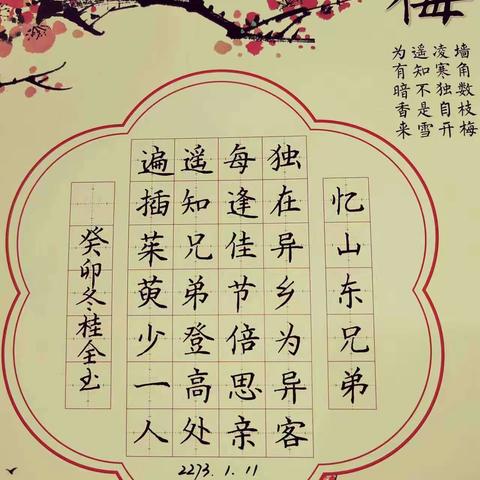 梅
墙角数枝梅
凌寒独自开
遥知不是雪
为有暗香来
忆山东兄弟
独在异乡为异客
每逢佳节倍思亲
遥知兄弟登高处
遍插茱萸少一人
癸卯冬桂全书
2273.1.11